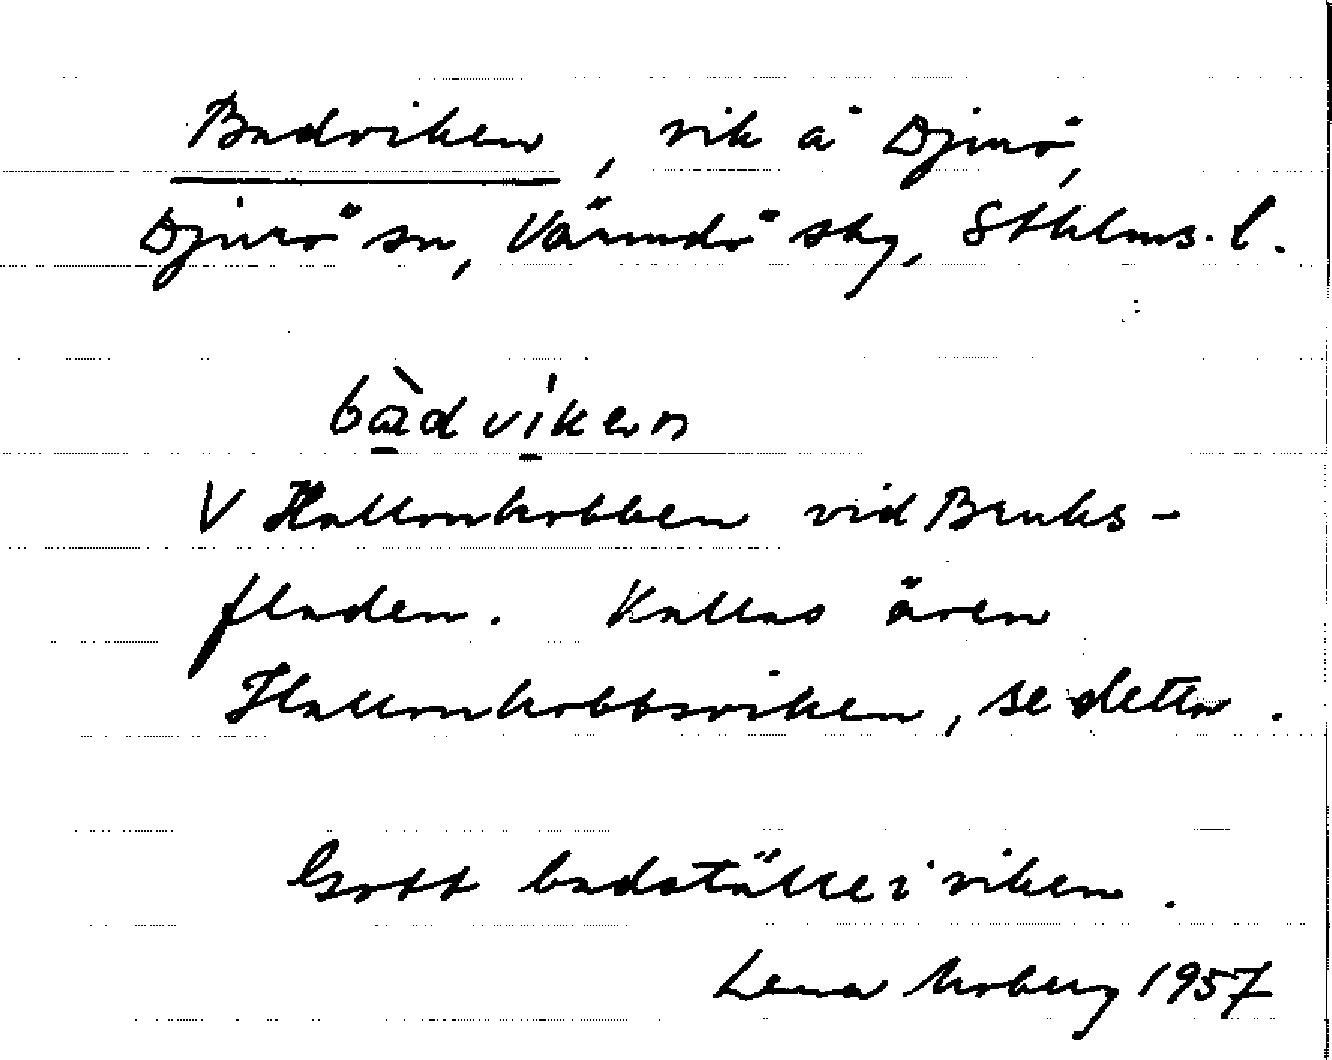 Badviken, vik å Djurö,
Djurö sn, Värmdö skg, Sthlms. l.
bàdvíken
V Hallonkobben vid Bruks-
fladen. Kallas även
Hallonkobbsviken, se detta.
Gott badställe i viken.
Lena Moberg 1957